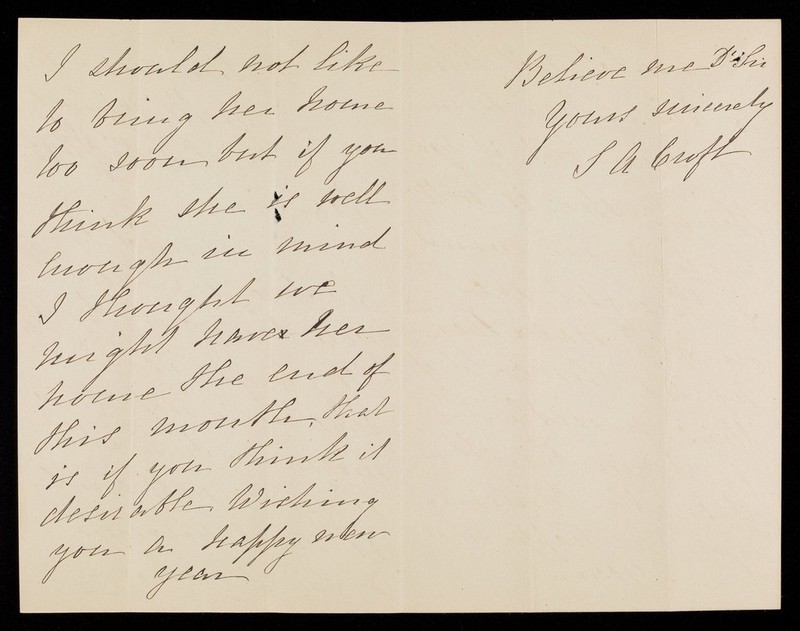 I should not like
to bring her home
too soon but if you
think she is well
enough in mind
I thought we
might have her
home the end of
this month, that
is if you think it
desirable Wishing
you a happy new
year
Believe me Dr Sir
Yours sincerely
S A Croft